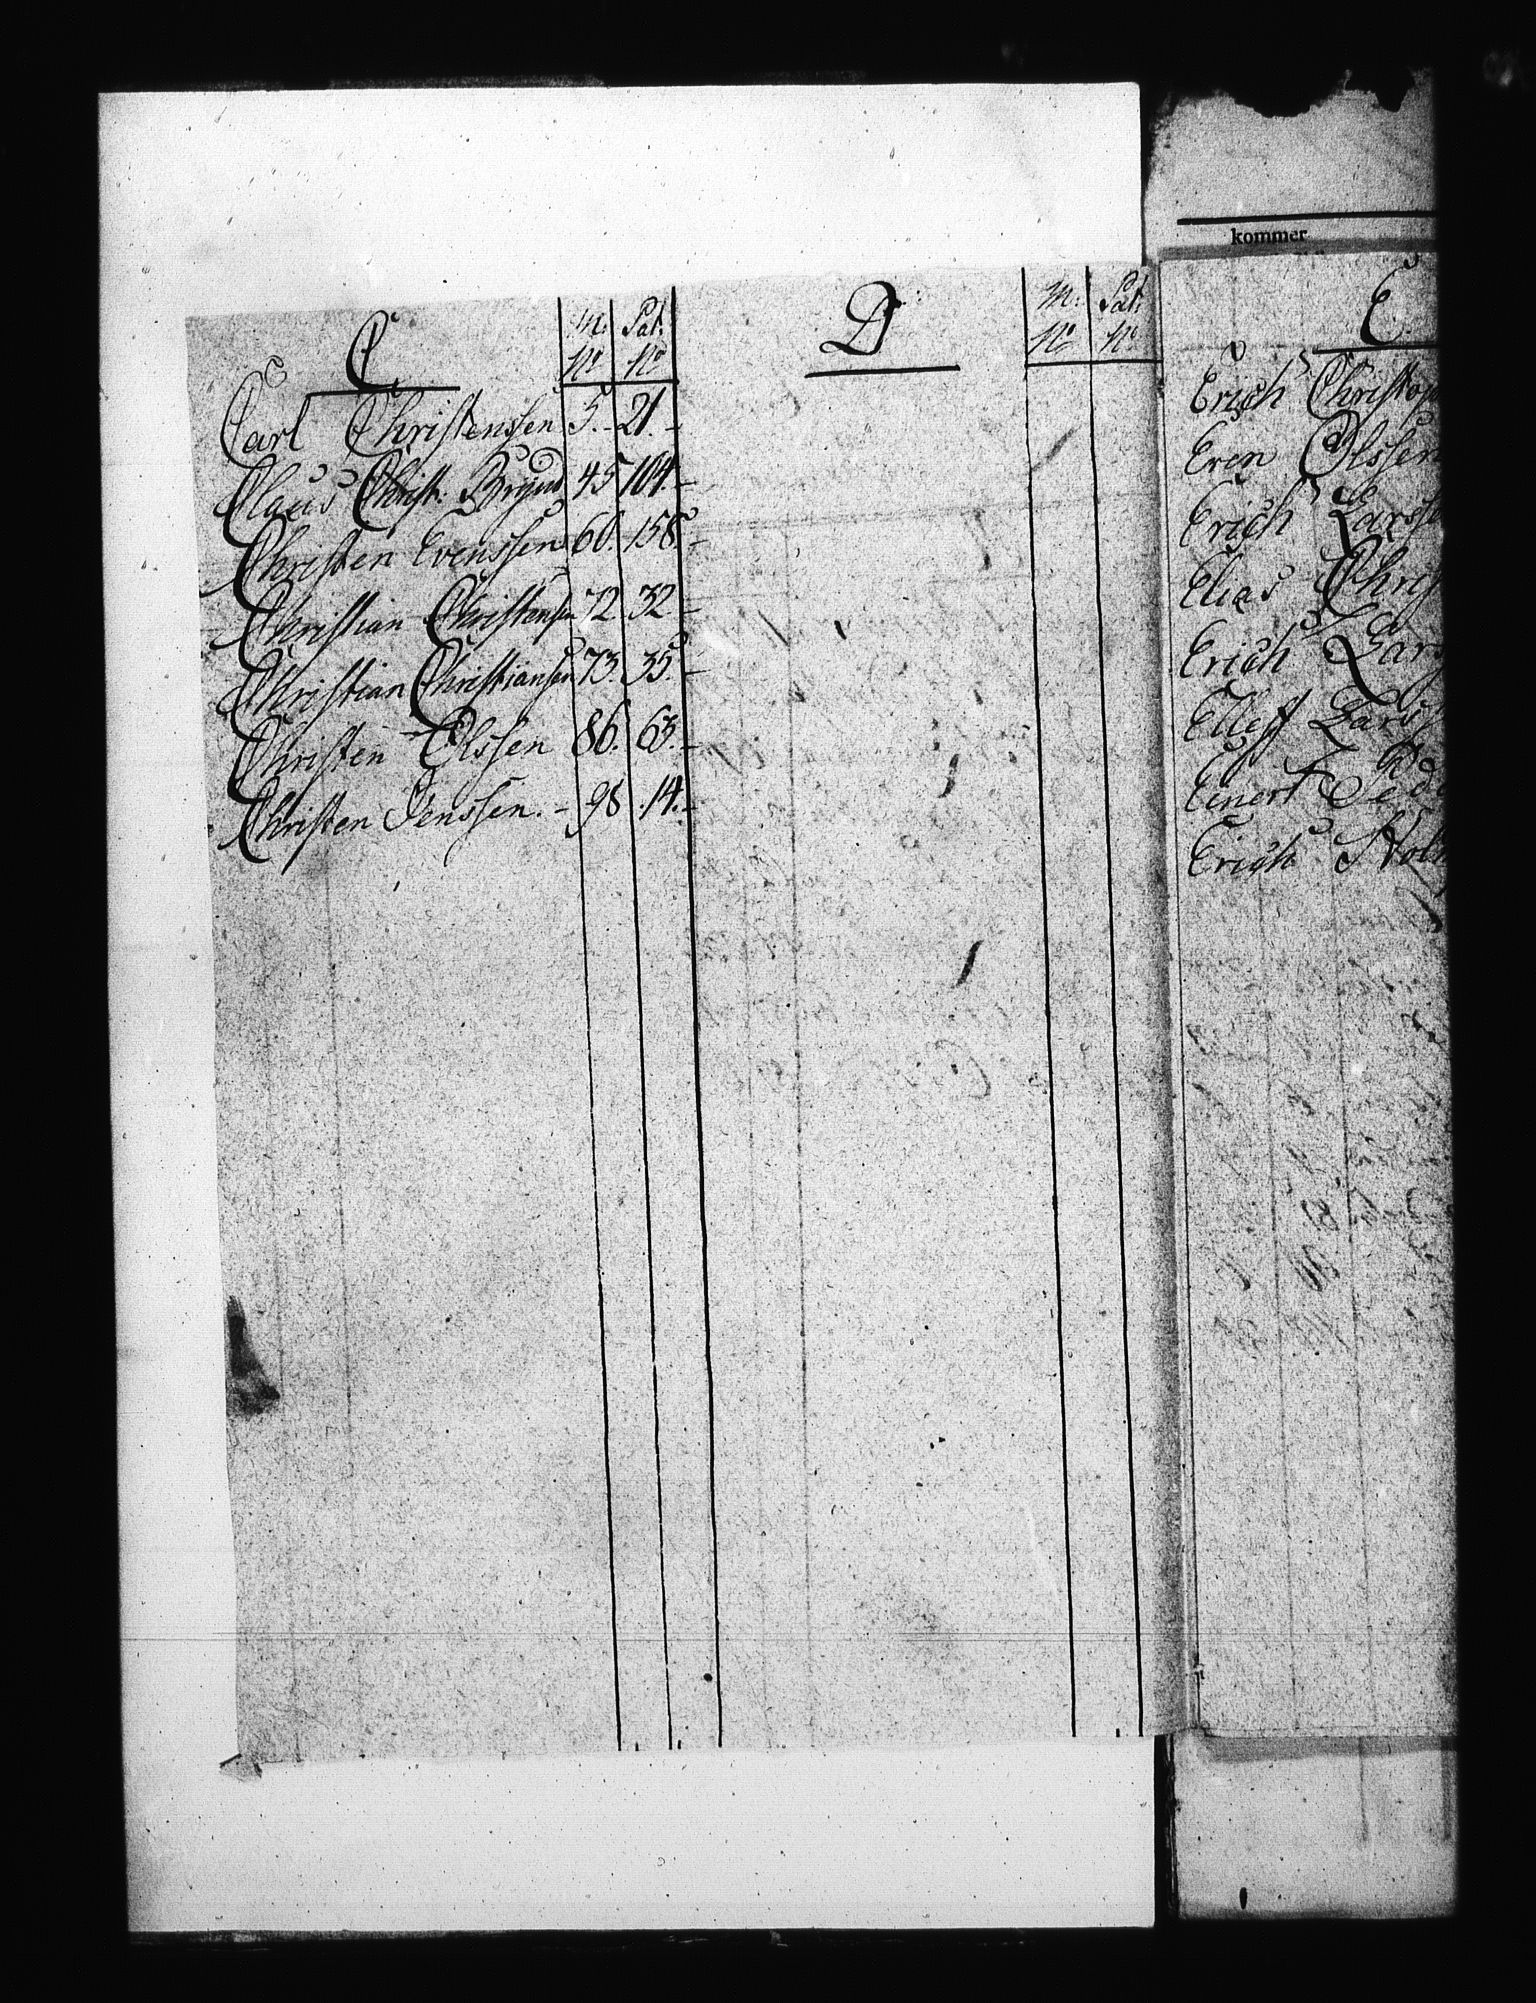 C
M: Pat:
No No
Carl Christenssen 5. 21.
Claus Christ: 45 104.
Christen Evenssen 60. 158
Christian Christenssen 72 32
Christian Christiansen 73. 35.
Christen Olssen 86. 63.
Christen Jenssen. 98 .14.
D
M: Pat:
No No
kommer
E
Erich Christop
Even Olssen
Erich Larss
Elias Chris
Erich Lars
Elleff Larss
Einert Ped
Erich Hol